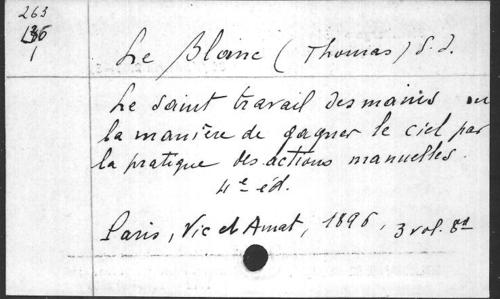 263
136
1
Le Blanc (Thomas) S. J.
Le saint travail des mains ou
la manière de gagner le ciel par
la pratique des actions manuelles.
4e éd.
Paris, Vic et Amat, 1896, 3 vol. 8°